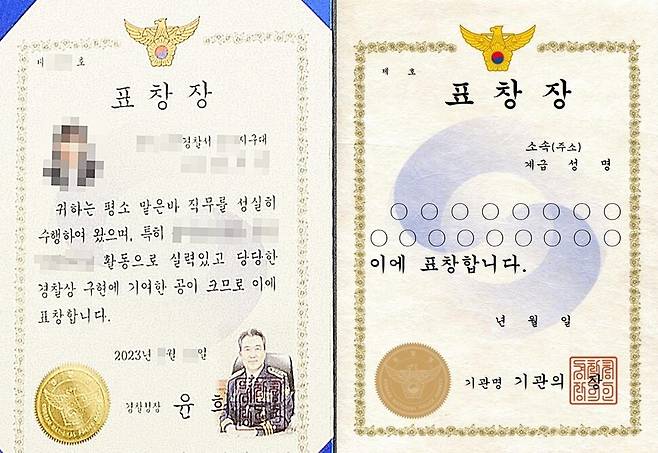 제 호
표 창 장
경찰서
지구대
귀하는 평소 맡은바 직무를 성실히
수행하여 왔으며, 특히
활동으로 실력있고 당당한
경찰상 구현에 기여한 공이 크므로 이에
표창합니다.
2023년 월 일
경찰청장 윤 희
제 호
표 창 장
소속(주소)
계급 성 명
○ ○ ○ ○ ○ ○ ○ ○
○ ○ ○ ○ ○ ○ ○ ○ ○
이에 표창합니다.
년 월 일
기관명 기관의 장